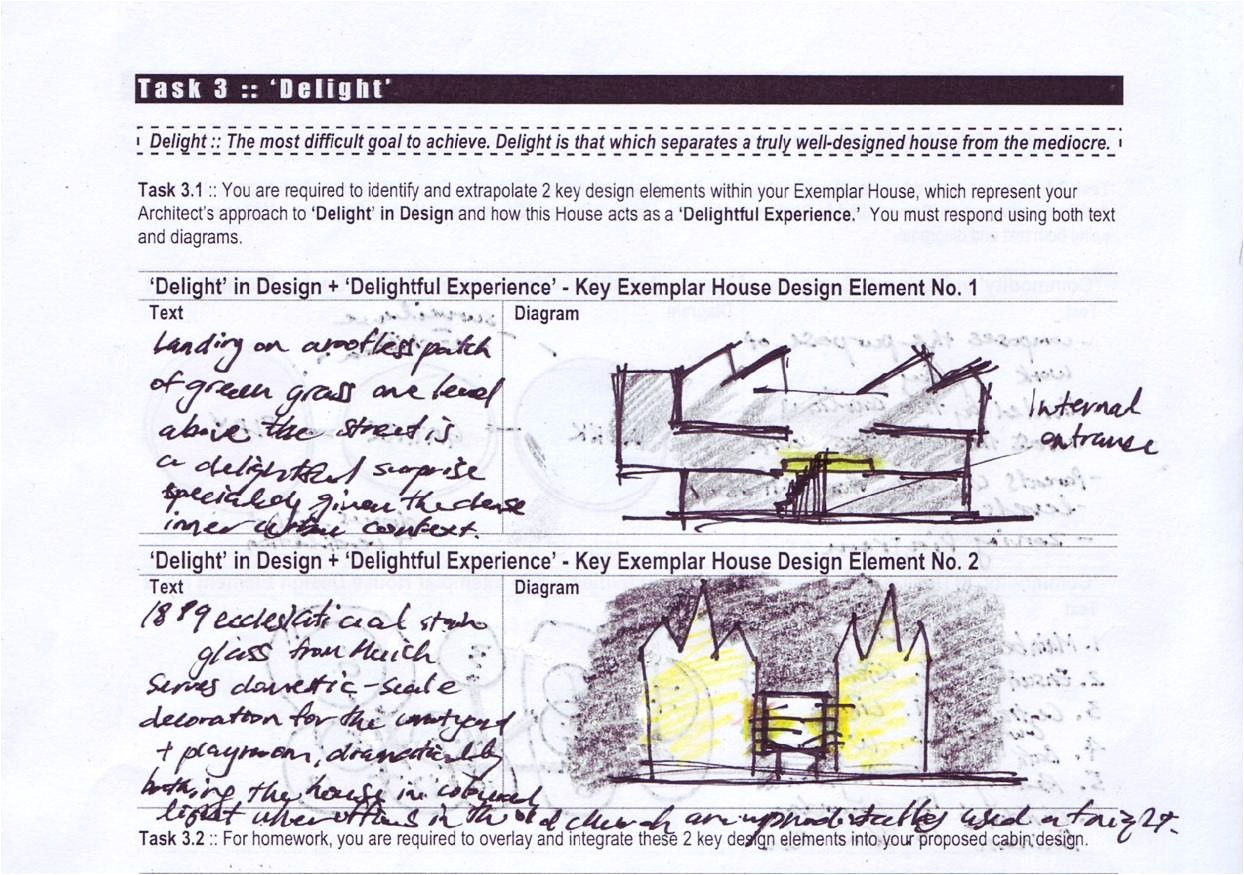 Task 3 :: ‘Delight’
Delight :: The most difficult goal to achieve. Delight is that which separates a truly well-designed house from the mediocre.
Task 3.1 :: You are required to identify and extrapolate 2 key design elements within your Exemplar House, which represent your
Architect's approach to ‘Delight’ in Design and how this House acts as a ‘Delightful Experience.’ You must respond using both text
and diagrams.
‘Delight’ in Design + ‘Delightful Experience’ - Key Exemplar House Design Element No. 1
Text
Diagram
Landing on a roofless patch
of green grass one level
above the street is
a delightful surprise
specially given the dense
inner urban context.
Internal
entranse
‘Delight’ in Design + ‘Delightful Experience’ - Key Exemplar House Design Element No. 2
Text
Diagram
1889 glass from
serves domestic-scale
decoration for the courtyard
+ playroom, dramatically
bathing the house in coloured
light when in the old church are used at night.
Task 3.2 :: For homework, you are required to overlay and integrate these 2 key design elements into your proposed cabin design.